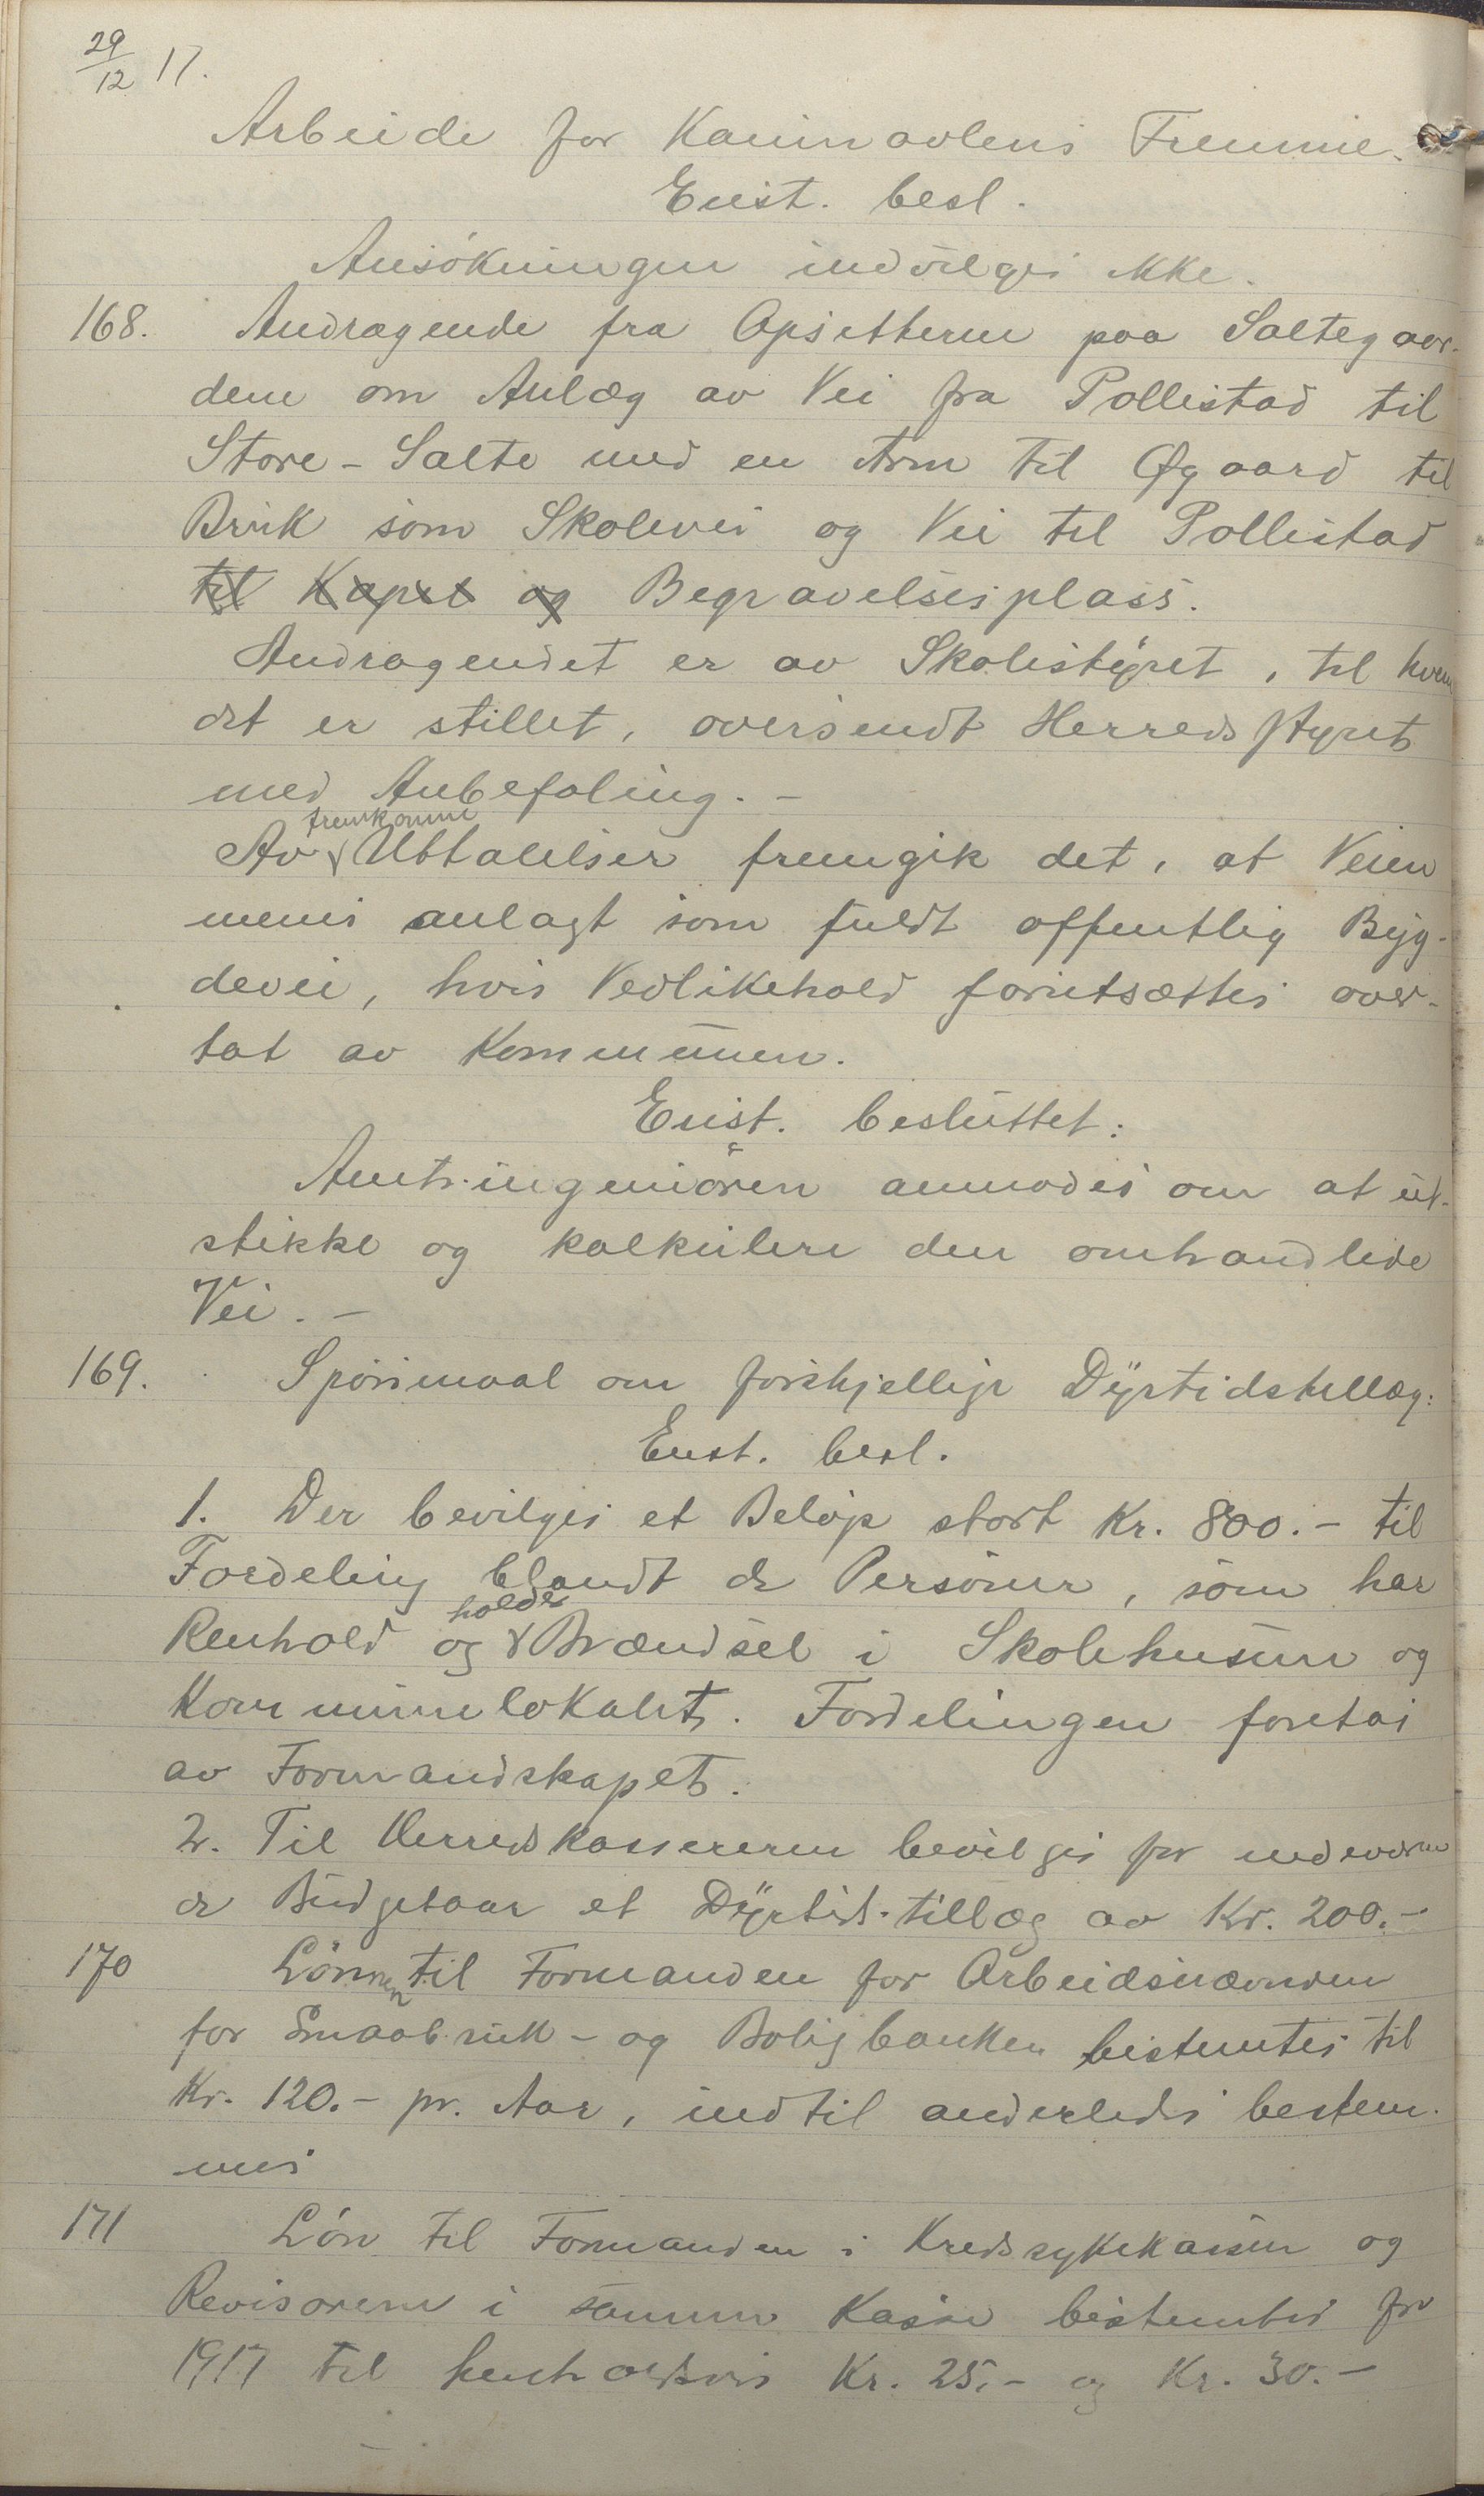 29/12 17.
Arbeide for Kaninavlens Fremme.
Enst. besl.
Ansökningen indvilges ikke.
168. Andragende fra Opsitterne paa Saltegaar-
dene om Anlæg av Vei fra Pollestad til
Store-Salte med en Arm til Øgaard til
Bruk som Skolevei og Vei til Pollestad
til Kapel og Begravelsesplass.
Andragendet er av Skolestyret, til hvem
det er stillet, oversendt Herredsstyret
med Anbefaling. -
fremkomne
Av Uttalelser fremgik det, at Veien
menes anlagt som fuldt offentlig Byg-
devei, hvis Vedlikehold forutsættes over-
tat av Kommunen.
Enst. besluttet:
Amtsingeniören anmodes om at ut-
stikke og kalkulere den omhandlede
Vei. -
169. Spörsmaal om forskjellige Dyrtidstillæg:
Enst. besl.
1. Der bevilges et Belöp stort Kr. 800.- til
Fordeling blandt de Personer, som har
holder
Renhold og Brændsel i Skolehusene og
Kommunelokalet. Fordelingen foretas
av Formandskapet.
2. Til Herredskassereren bevilges for indeværen
de Budgetaar et Dyrtids-tillæg av Kr. 200.-
170 Lönnen til Formanden for Arbeidsnævnden
for Smaabruk- og Boligbanken bestemtes til
Kr. 120.- pr. Aar, indtil anderledes bestem-
mes
171 Lön til Formanden i Kredssykekassen og
Revisorerne i samme Kasse bestemtes for
1917 til henholdsvis Kr. 25.- og Kr. 30.-